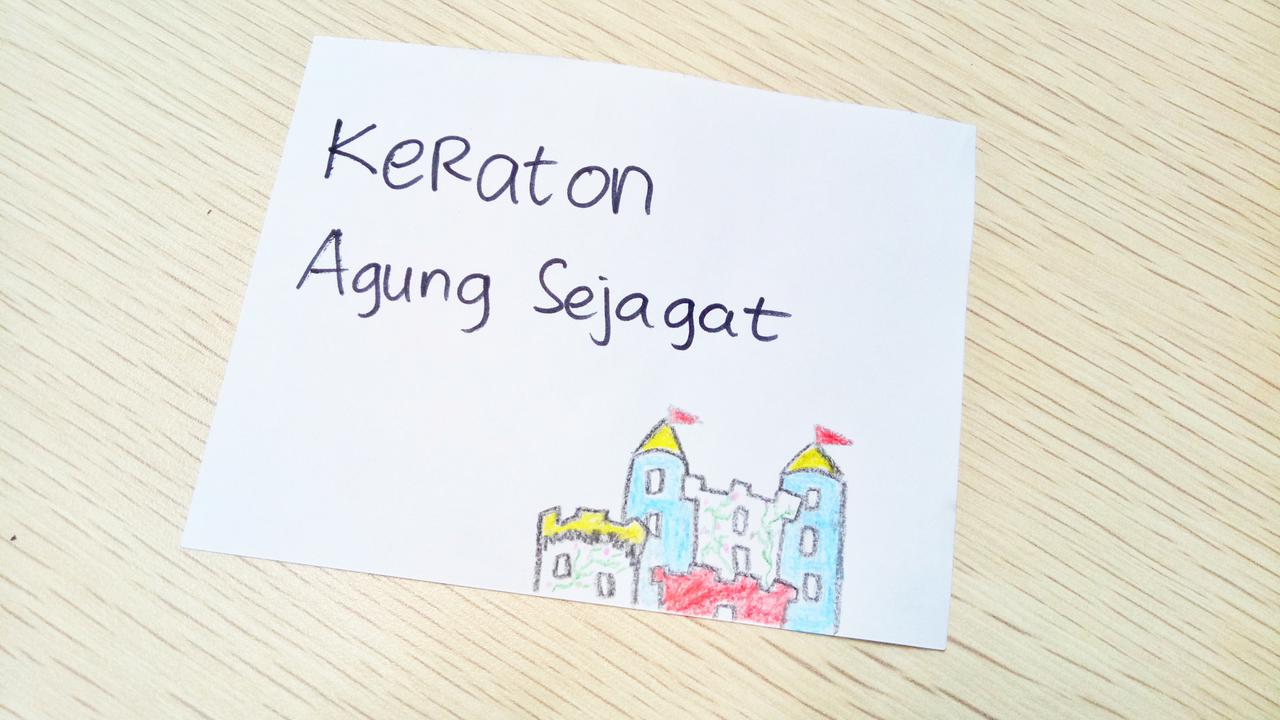 KeRaton
Agung Sejagat